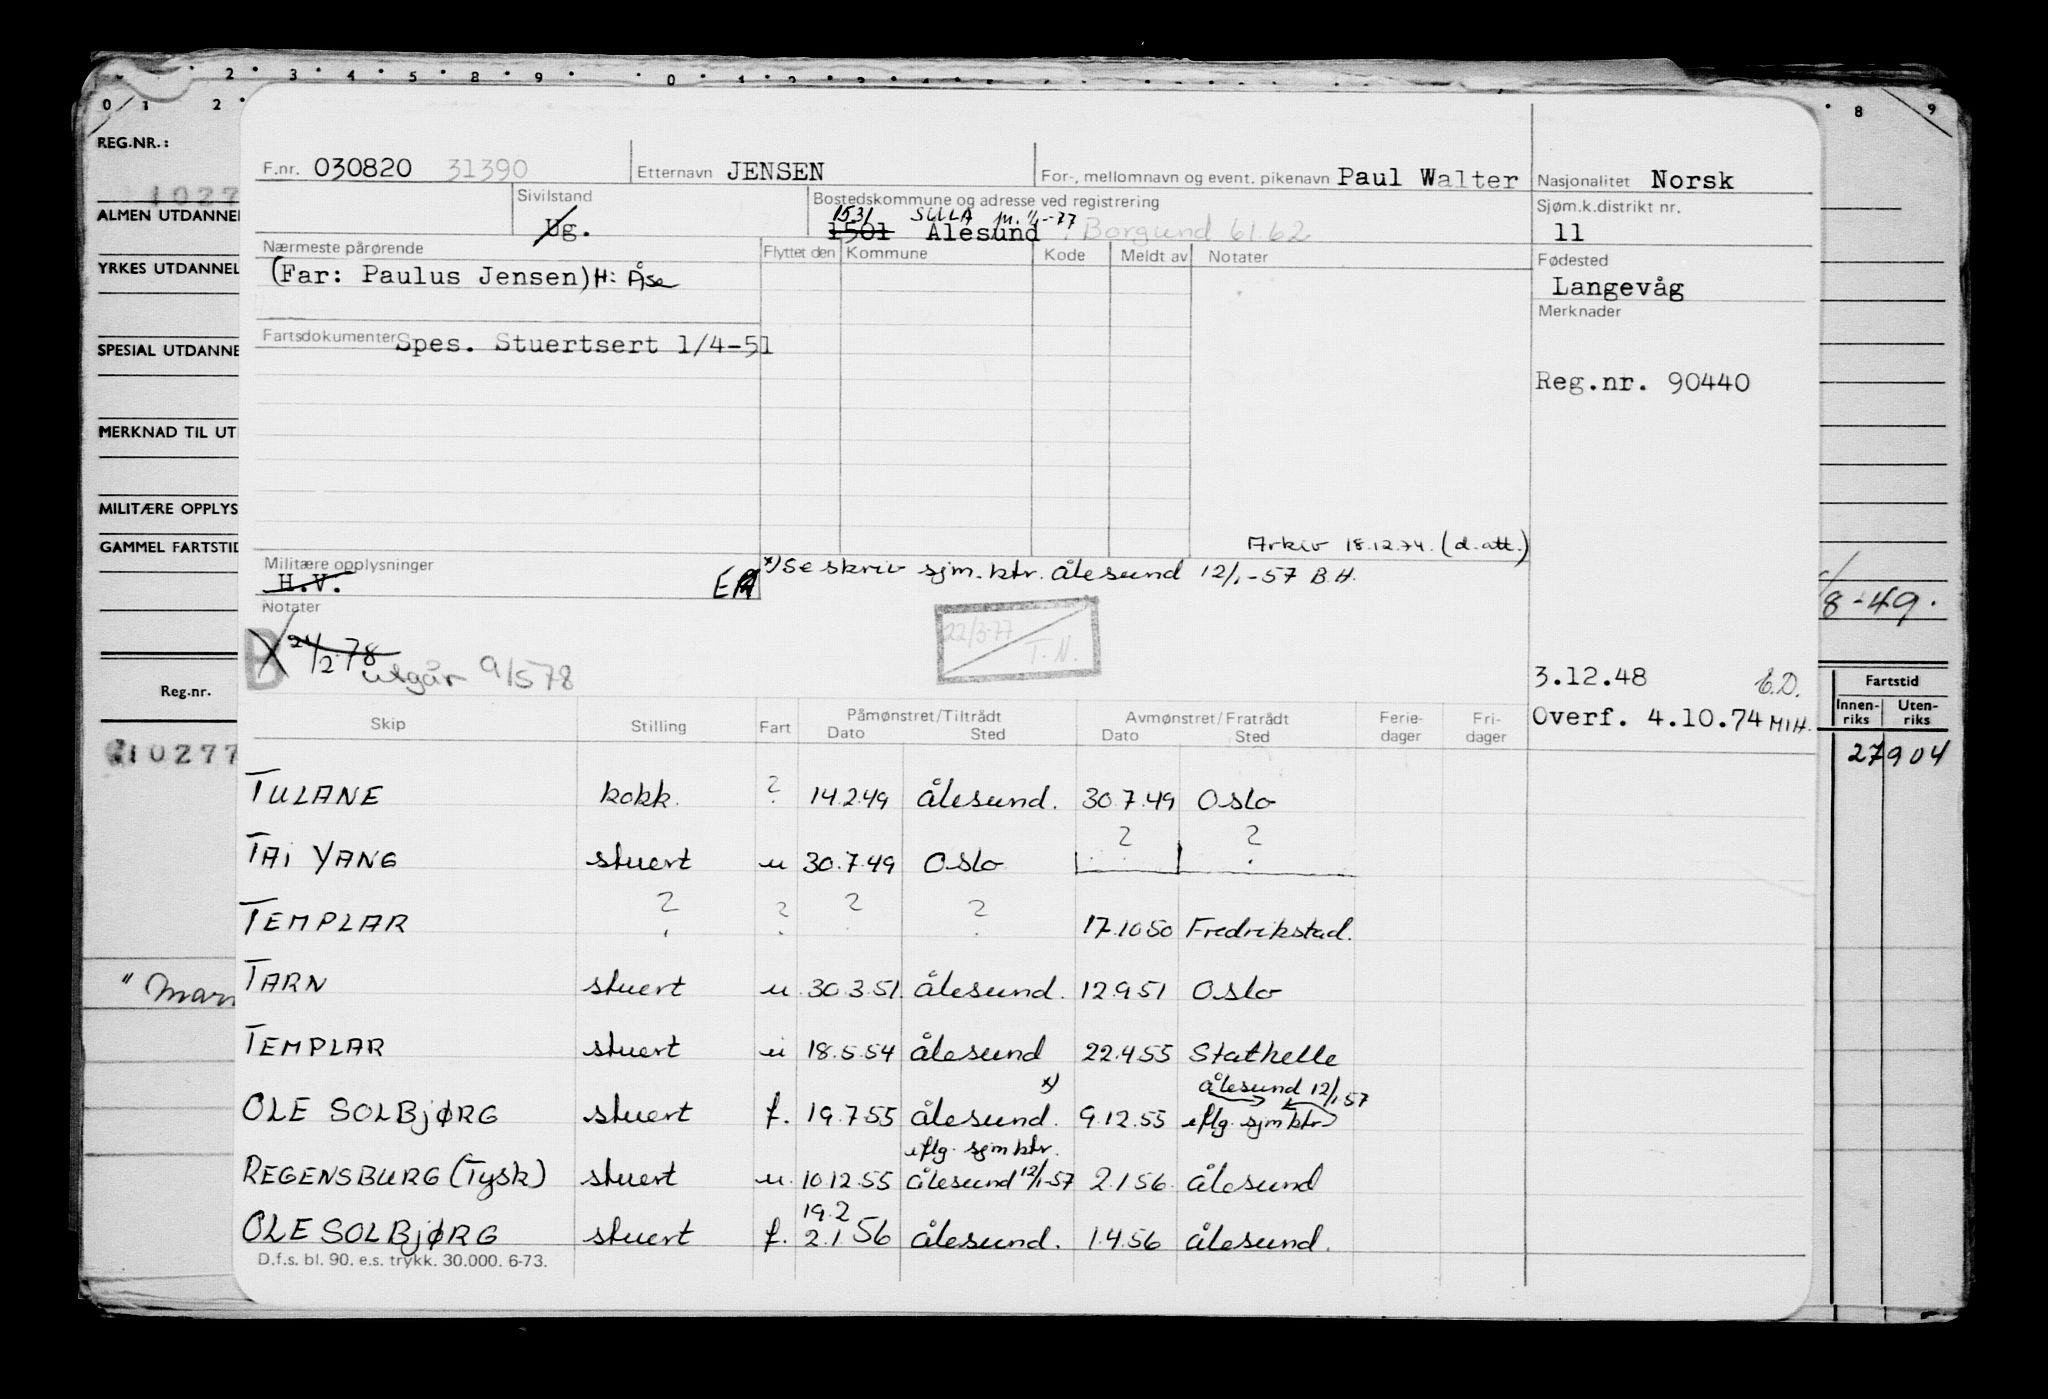 2 3 4 5 8 9 0 1 2 3 4
0 1 2 8 9
REG.NR.:
1027
ALMEN UTDANNEL
YRKES UTDANNEL
SPESIAL UTDANNE
MERKNAD TIL UT
MILITÆRE OPPLYS
GAMMEL FARTSTID
Reg.nr.
10277
" Mar
F.nr. 030820 31390 Etternavn JENSEN For-, mellomnavn og event. pikenavn Paul Walter Nasjonalitet Norsk
Sivilstand Bostedskommune og adresse ved registrering Sjøm.k.distrikt nr.
1531 SULA m. 1/1-77
Ug. 1501 Ålesund, Borgund 61.62 11
Nærmeste pårørende Flyttet den Kommune Kode Meldt av Notater Fødested
(Far: Paulus Jensen) H: Åse Langevåg
Merknader
Fartsdokumenter Spes. Stuertsert 1/4-51
Reg.nr. 90440
Arkiv 18.12.74. (d.att.)
Militære opplysninger x) Se skriv sjm.ktr. Ålesund 12/1-57 B.H.
H.V.
Notater
22/3-77
T.N.
B 24/2-78 utgår 9/578
8-49.
3.12.48 E.D.
Overf. 4.10.74 MIH.
Fartstid
Innen-riks Uten-riks
27904
Skip Stilling Fart Påmønstret/Tiltrådt Dato Sted Avmønstret/Fratrådt Dato Sted Ferie-dager Fri-dager
TULANE kokk. ? 14.2.49 Ålesund. 30.7.49 Oslo
TAI YANG stuert u 30.7.49 Oslo ? ?
TEMPLAR ? ? ? ? 17.10.50 Fredrikstad.
TARN stuert u. 30.3.51. Ålesund. 12.9.51 Oslo
TEMPLAR stuert u 18.5.54 Ålesund 22.4.55 Stathelle
x) Ålesund 12/1-57
OLE SOLBJØRG stuert f. 19.7.55 Ålesund. 9.12.55 iflg. sjm ktr
iflg. sjm ktr.
REGENSBURG (Tysk) stuert u. 10.12.55 Ålesund 12/1-57 2.1.56 Ålesund
19.2
OLE SOLBJØRG stuert f. 2.1.56 Ålesund. 1.4.56 Ålesund.
D.f.s. bl. 90. e.s. trykk. 30.000. 6-73.